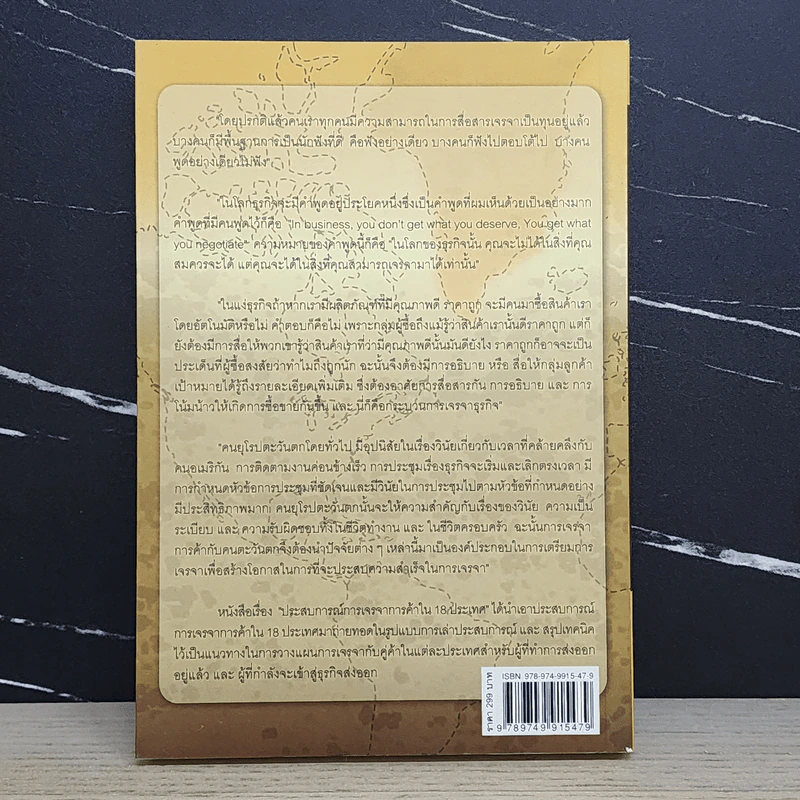 "โดยปรกติแล้วคนเราทุกคนมีความสามารถในการสื่อสารเจรจาเป็นทุนอยู่แล้ว
บางคนก็มีพื้นฐานการเป็นนักฟังที่ดี คือฟังอย่างเดียว บางคนก็ฟังไปตอบโต้ไป บางคน
พูดอย่างเดียวไม่ฟัง"
"ในโลกธุรกิจจะมีคำพูดอยู่ประโยคหนึ่งซึ่งเป็นคำพูดที่ผมเห็นด้วยเป็นอย่างมาก
คำพูดที่มีคนพูดไว้ก็คือ "In business, you don't get what you deserve, You get what
you negotiate" ความหมายของคำพูดนี้ก็คือ "ในโลกของธุรกิจนั้น คุณจะไม่ได้ในสิ่งที่คุณ
สมควรจะได้ แต่คุณจะได้ในสิ่งที่คุณสามารถเจรจามาได้เท่านั้น"
"ในแง่ธุรกิจถ้าหากเรามีผลิตภัณฑ์ที่มีคุณภาพดี ราคาถูก จะมีคนมาซื้อสินค้าเรา
โดยอัตโนมัติหรือไม่ คำตอบก็คือไม่ เพราะกลุ่มผู้ซื้อถึงแม้รู้ว่าสินค้าเรานั้นดีราคาถูก แต่ก็
ยังต้องมีการสื่อให้พวกเขารู้ว่าสินค้าเราที่ว่ามีคุณภาพดีนั้นมันดียังไง ราคาถูกก็อาจจะเป็น
ประเด็นที่ผู้ซื้อสงสัยว่าทำไมถึงถูกนัก ฉะนั้นจึงต้องมีการอธิบาย หรือ สื่อให้กลุ่มลูกค้า
เป้าหมายได้รู้ถึงรายละเอียดเพิ่มเติม ซึ่งต้องอาศัยการสื่อสารกัน การอธิบาย และ การ
โน้มน้าวให้เกิดการซื้อขายกันขึ้น และ นี่ก็คือกระบวนการเจรจาธุรกิจ"
"คนยุโรปตะวันตกโดยทั่วไป มีอุปนิสัยในเรื่องวินัยเกี่ยวกับเวลาที่คล้ายคลึงกับ
คนอเมริกัน การติดตามงานค่อนข้างเร็ว การประชุมเรื่องธุรกิจจะเริ่มและเลิกตรงเวลา มี
การกำหนดหัวข้อการประชุมที่ชัดเจนและมีวินัยในการประชุมไปตามหัวข้อที่กำหนดอย่าง
มีประสิทธิภาพมาก คนยุโรปตะวันตกนั้นจะให้ความสำคัญกับเรื่องของวินัย ความเป็น
ระเบียบ และ ความรับผิดชอบทั้งในชีวิตทำงาน และ ในชีวิตครอบครัว ฉะนั้นการเจรจา
การค้ากับคนตะวันตกจึงต้องนำปัจจัยต่าง ๆ เหล่านี้มาเป็นองค์ประกอบในการเตรียมการ
เจรจาเพื่อสร้างโอกาสในการที่จะประสบความสำเร็จในการเจรจา"
หนังสือเรื่อง "ประสบการณ์การเจรจาการค้าใน 18 ประเทศ" ได้นำเอาประสบการณ์
การเจรจาการค้าใน 18 ประเทศมาถ่ายทอดในรูปแบบการเล่าประสบการณ์ และ สรุปเทคนิค
ไว้เป็นแนวทางในการวางแผนการเจรจากับคู่ค้าในแต่ละประเทศสำหรับผู้ที่ทำการส่งออก
อยู่แล้ว และ ผู้ที่กำลังจะเข้าสู่ธุรกิจส่งออก
ISBN 978-974-9915-47-9
ราคา 299 บาท
9 789749 915479